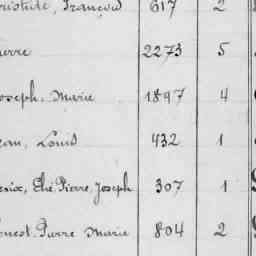 Aristide, François 617 2
Pierre 2273 5
Joseph, Marie 1897 4
Jean, Louis 432 1
Elie Pierre Joseph 307 1
Ernest Pierre Marie 804 2